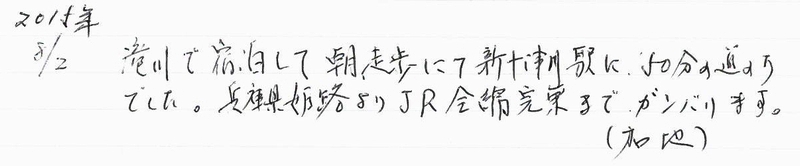 2015年
8/2 滝川で宿泊して朝徒歩にて新十津川駅に、50分の道のり
でした。兵庫県姫路よりJR全線完乗までガンバります。
(加地)